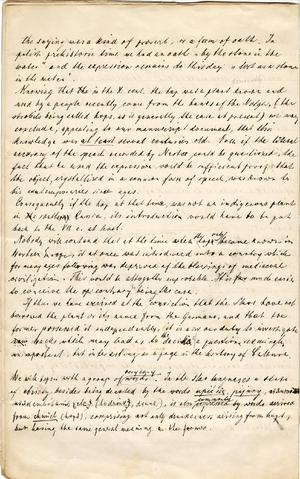 the saying was a kind of proverb, or a form of oath. In
polish prehistoric time we had an oath "by the stone in the
water" and the expression remains to this day "lost as a stone
in the water".
generally
Knowing that the in the X cent. the hop were a plant known and
used by a people recently come from the banks of the Volga, (the
strobils being called hops, as is generally the case at present) we may
conclude, appealing to our manuscript document, that this
knowledge was at least several centuries old. Even if the literal
accuracy of the speech recorded by Nestor could be questioned, the
fact that he used the expression would be sufficient proof that
the object, crystallized in a common form of speech was known to
his contemporaries since ages.
Consequently if the hop at that time, was not an indigenous plant
in the Russia, its introduction would have to be put
back to the VII c. at least.
Nobody will contend that at the time when the hops became known in
Northern Europe, it at once was introduced into a country which
for many ages following was deprived of the blessings of mediaeval
civilization. This would be altogether improbable. It is far much easier
to conceive the contrary being the case.
After we have arrived at the conviction that the Slavs have not
borrowed the plant or its name from the Germans, and that the
former possessed it independently, it is now our duty to investigate
facts which may lead us to decide a question, seemingly
unimportant, but interesting as a page in the history of culture.
We will begin with a group of words. In the Slav languages a state
of obriety besides being denoted by the words
is also expressed by words derived
from chmiel (hops), comprising not only drunkenness arising from hops,
but having the same general meaning as the former.